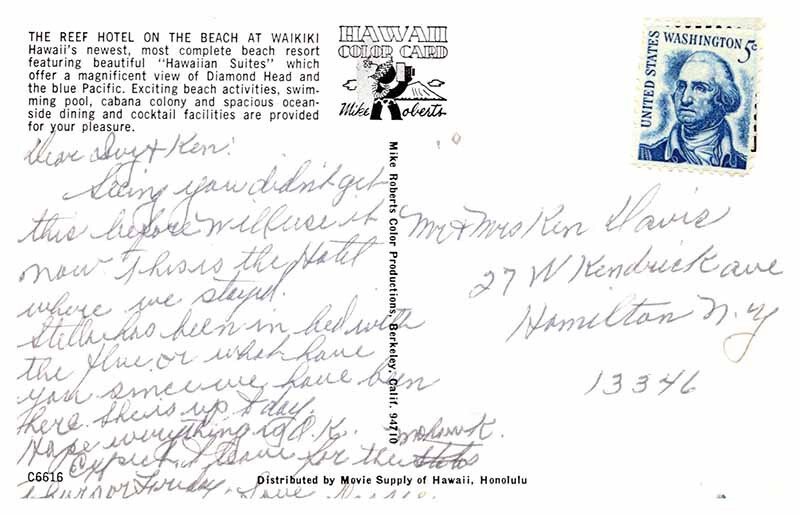 THE REEF HOTEL ON THE BEACH AT WAIKIKI
Hawaii's newest, most complete beach resort
featuring beautiful "Hawaiian Suites" which
offer a magnificent view of Diamond Head and
the blue Pacific. Exciting beach activities, swim-
ming pool, cabana colony and spacious ocean-
side dining and cocktail facilities are provided
for your pleasure.
HAWAII
COLOR CARD
Mike Roberts
UNITED STATES
WASHINGTON 5c
Dear Ivy & Ken:
Seeing you didn't get
this before will use it
now. This is the Hotel
where we stayed.
Stella has been in bed with
the flue or what have
you since we have been
here. She is up today.
Hope everything is O.K.
Expect to leave for the
Thurs or Friday. Love
Mike Roberts Color Productions, Berkeley, Calif. 94710
Mr & Mrs Ken Davis
27 W Kendrick ave
Hamilton N.Y
13346
C6616
Distributed by Movie Supply of Hawaii, Honolulu